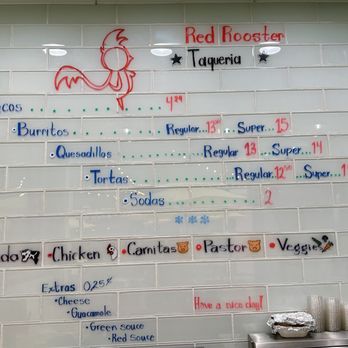 Red Rooster
★ Taqueria ★
acos 4²⁹
• Burritos Regular...13⁵⁰ ... Super...15
• Quesadillas Regular 13 ... Super...14
• Tortas Regular...12⁵⁰ ... Super...1
• Sodas 2
***
ada • Chicken • Carnitas • Pastor • Veggies
Extras 0.25¢
• Cheese
• Guacamole
• Green sauce
• Red sauce
Have a nice day!